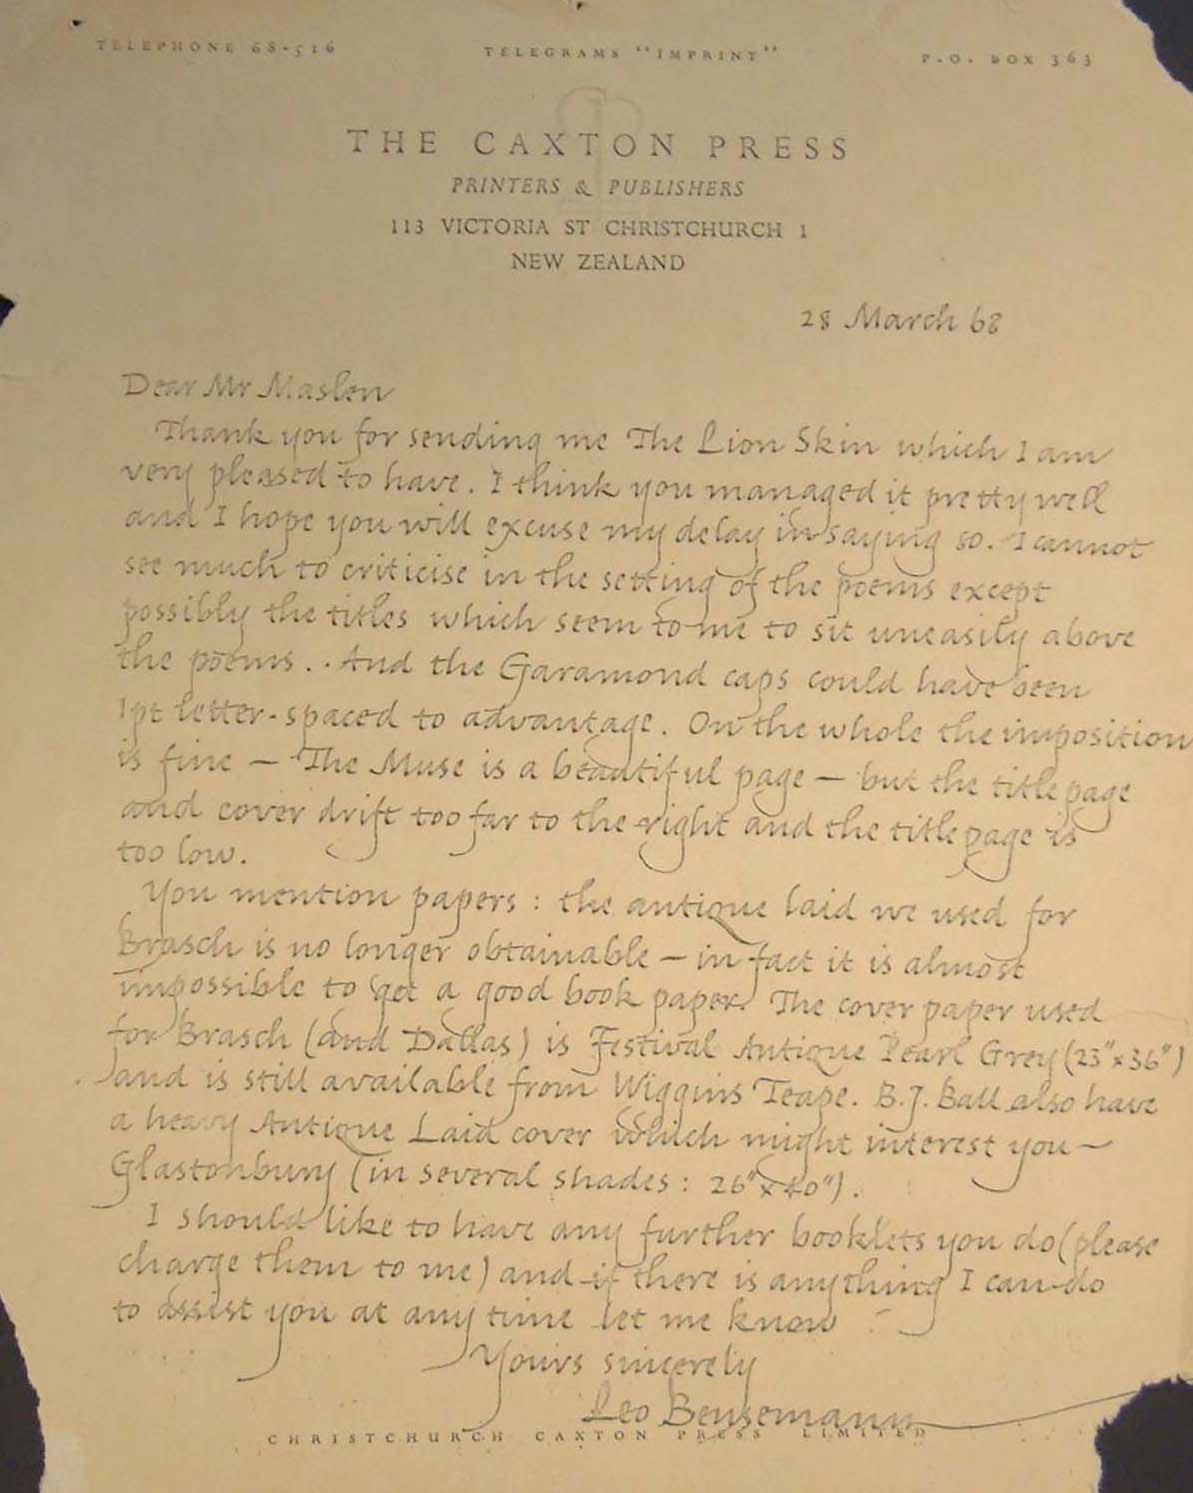 TELEPHONE 68-516 TELEGRAMS "IMPRINT" P.O. BOX 363
THE CAXTON PRESS
PRINTERS & PUBLISHERS
113 VICTORIA ST CHRISTCHURCH 1
NEW ZEALAND
28 March 68
Dear Mr Maslen
Thank you for sending me The Lion Skin which I am
very pleased to have. I think you managed it pretty well
and I hope you will excuse my delay in saying so. I cannot
see much to criticise in the setting of the poems except
possibly the titles which seem to me to sit uneasily above
the poems. . And the Garamond caps could have been
1pt letter-spaced to advantage. On the whole the imposition
is fine — The Muse is a beautiful page — but the title page
and cover drift too far to the right and the title page is
too low.
You mention papers: the antique laid we used for
Brasch is no longer obtainable — in fact it is almost
impossible to get a good book paper. The cover paper used
for Brasch (and Dallas) is Festival Antique Pearl Grey (23" x 36")
and is still available from Wiggins Teape. B.J. Ball also have
a heavy Antique Laid cover which might interest you —
Glastonbury (in several shades: 26" x 40").
I should like to have any further booklets you do (please
charge them to me) and if there is anything I can do
to assist you at any time let me know
Yours sincerely
Leo Bensemann
CHRISTCHURCH CAXTON PRESS LIMITED